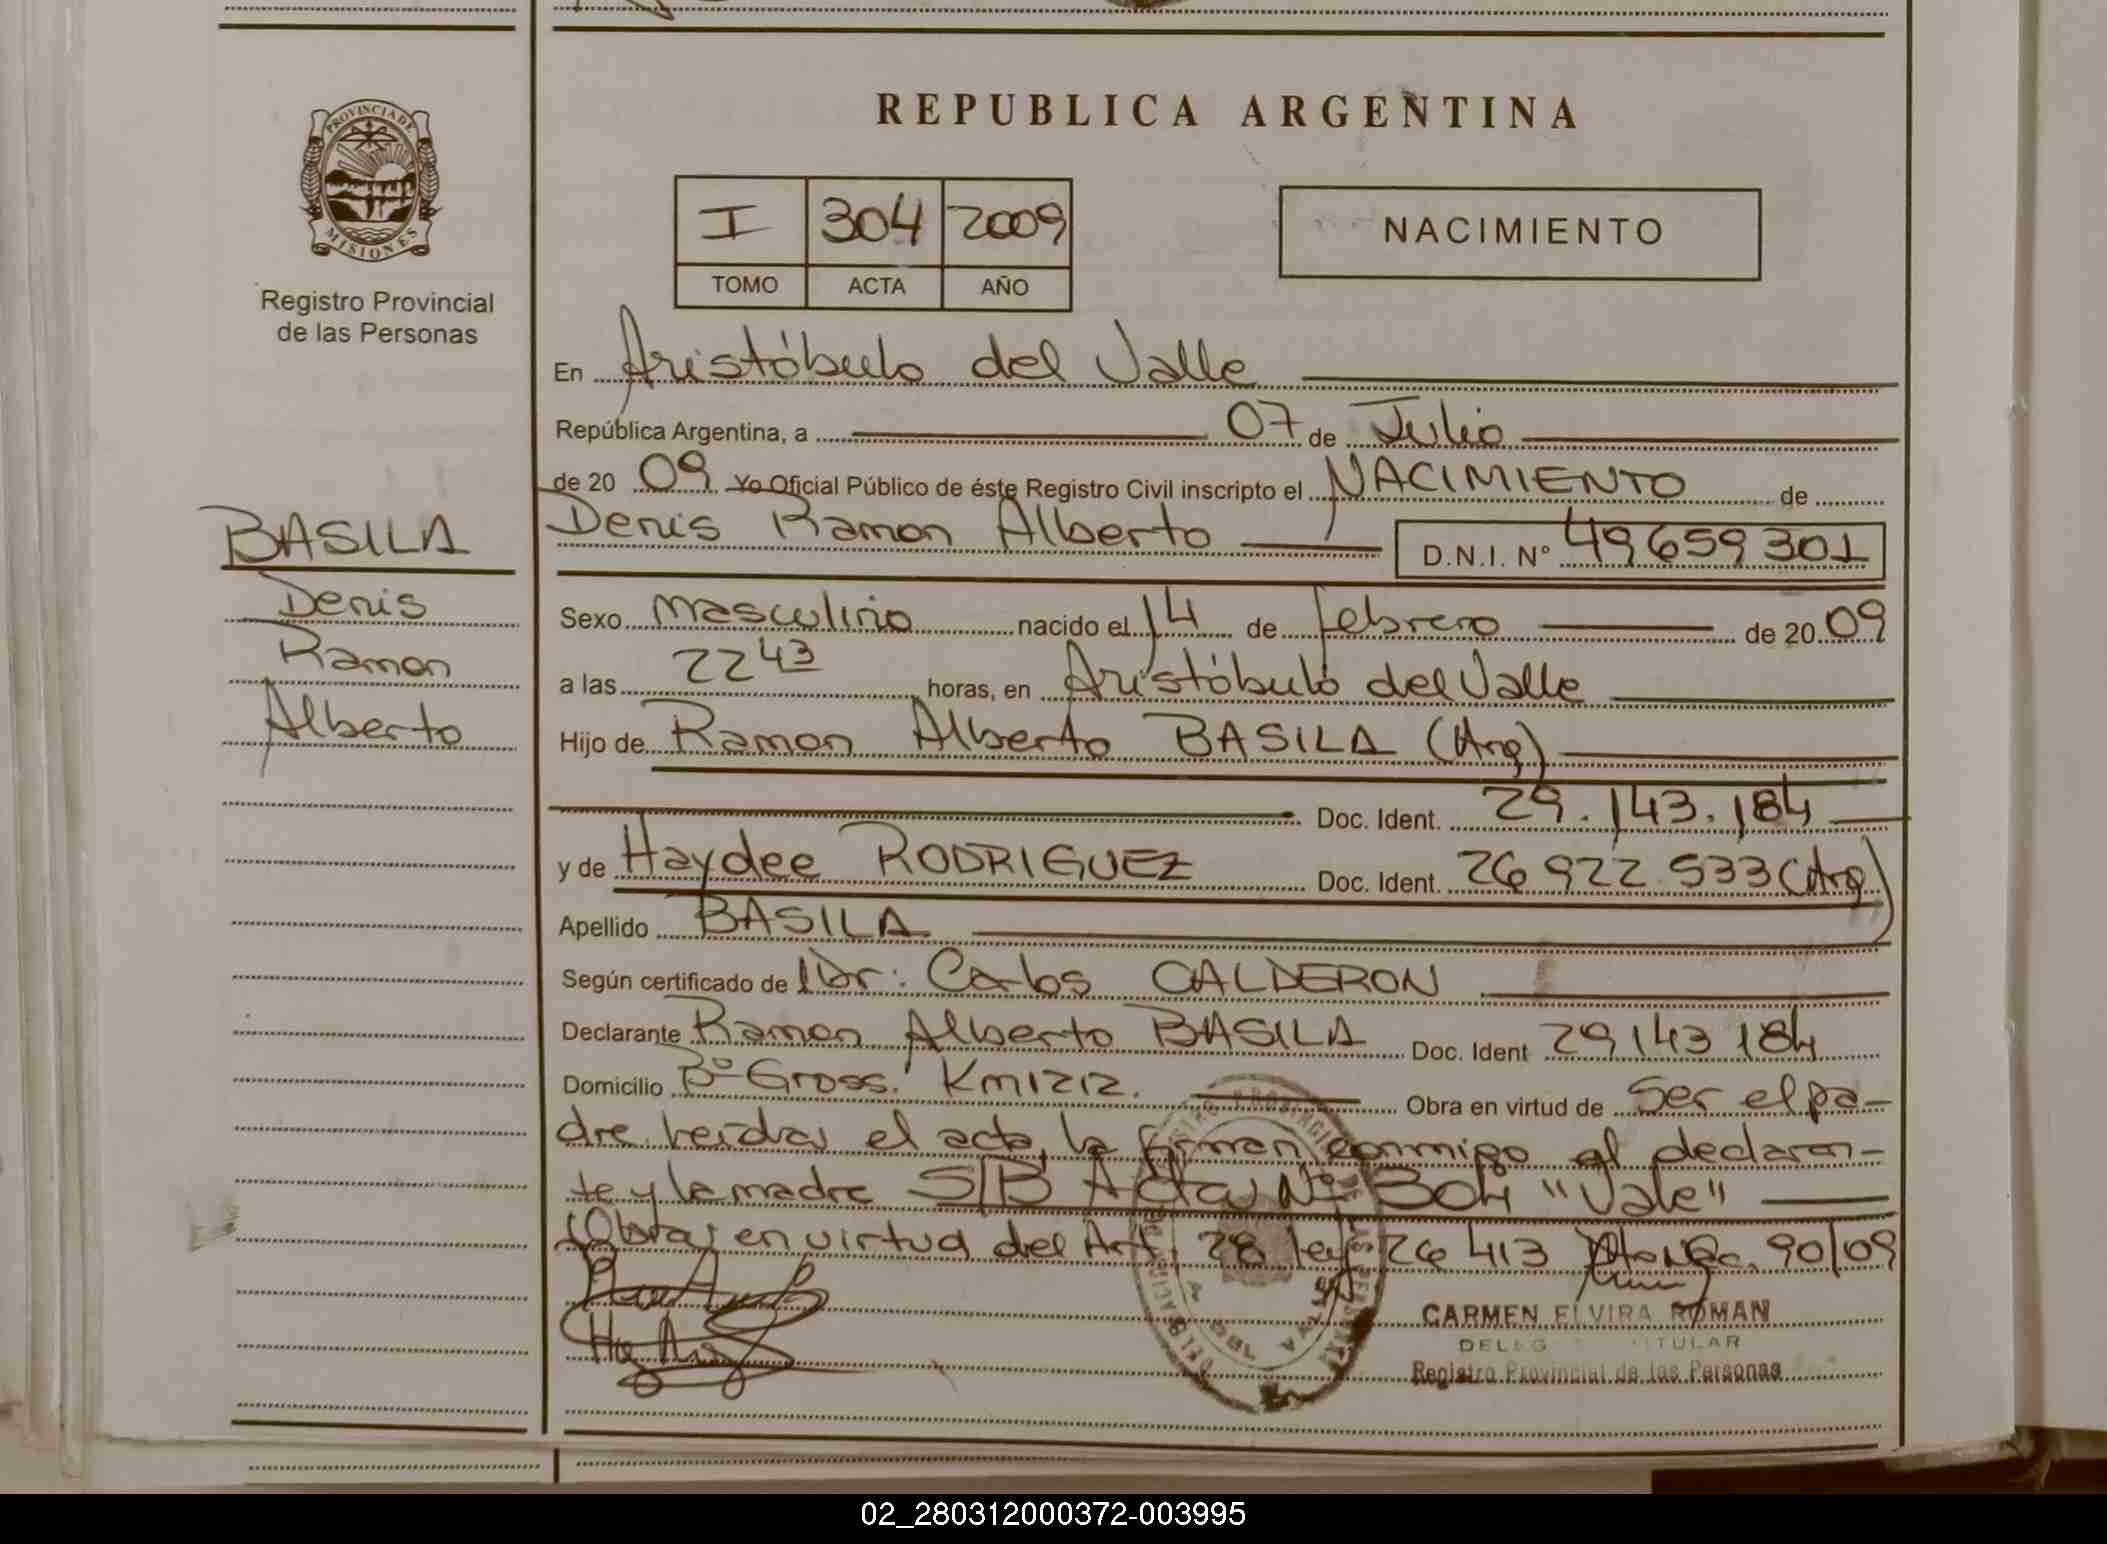 REPUBLICA ARGENTINA
PROVINCIA DE
MISIONES
Registro Provincial
de las Personas
I 304 2009
TOMO ACTA AÑO
NACIMIENTO
En Aristóbulo del Valle
República Argentina, a 07 de Julio
de 20 09 Yo Oficial Público de éste Registro Civil inscripto el NACIMIENTO de
Denis Ramon Alberto D.N.I. Nº 49659301
BASILA
Denis
Ramon
Alberto
Sexo Masculino nacido el 14 de febrero de 20 09
a las 22 43 horas, en Aristóbulo del Valle
Hijo de Ramon Alberto BASILA (Arg)
Doc. Ident. 29.143.184
y de Haydee RODRIGUEZ Doc. Ident. 26 922 533 (Arg)
Apellido BASILA
Según certificado de Dr: Carlos CALDERON
Declarante Ramon Alberto BASILA Doc. Ident 29 143 184
Domicilio Bº Gross. Km 1212. Obra en virtud de Ser el pa-
dre. leída el acta, la firman conmigo el declaran-
te y la madre S/B Acta Nº 304 "Vale"
Obra en virtud del Art. 28 ley 26 413 90/09
CARMEN ELVIRA ROMAN
TITULAR
Registro Provincial de las Personas
02_280312000372-003995